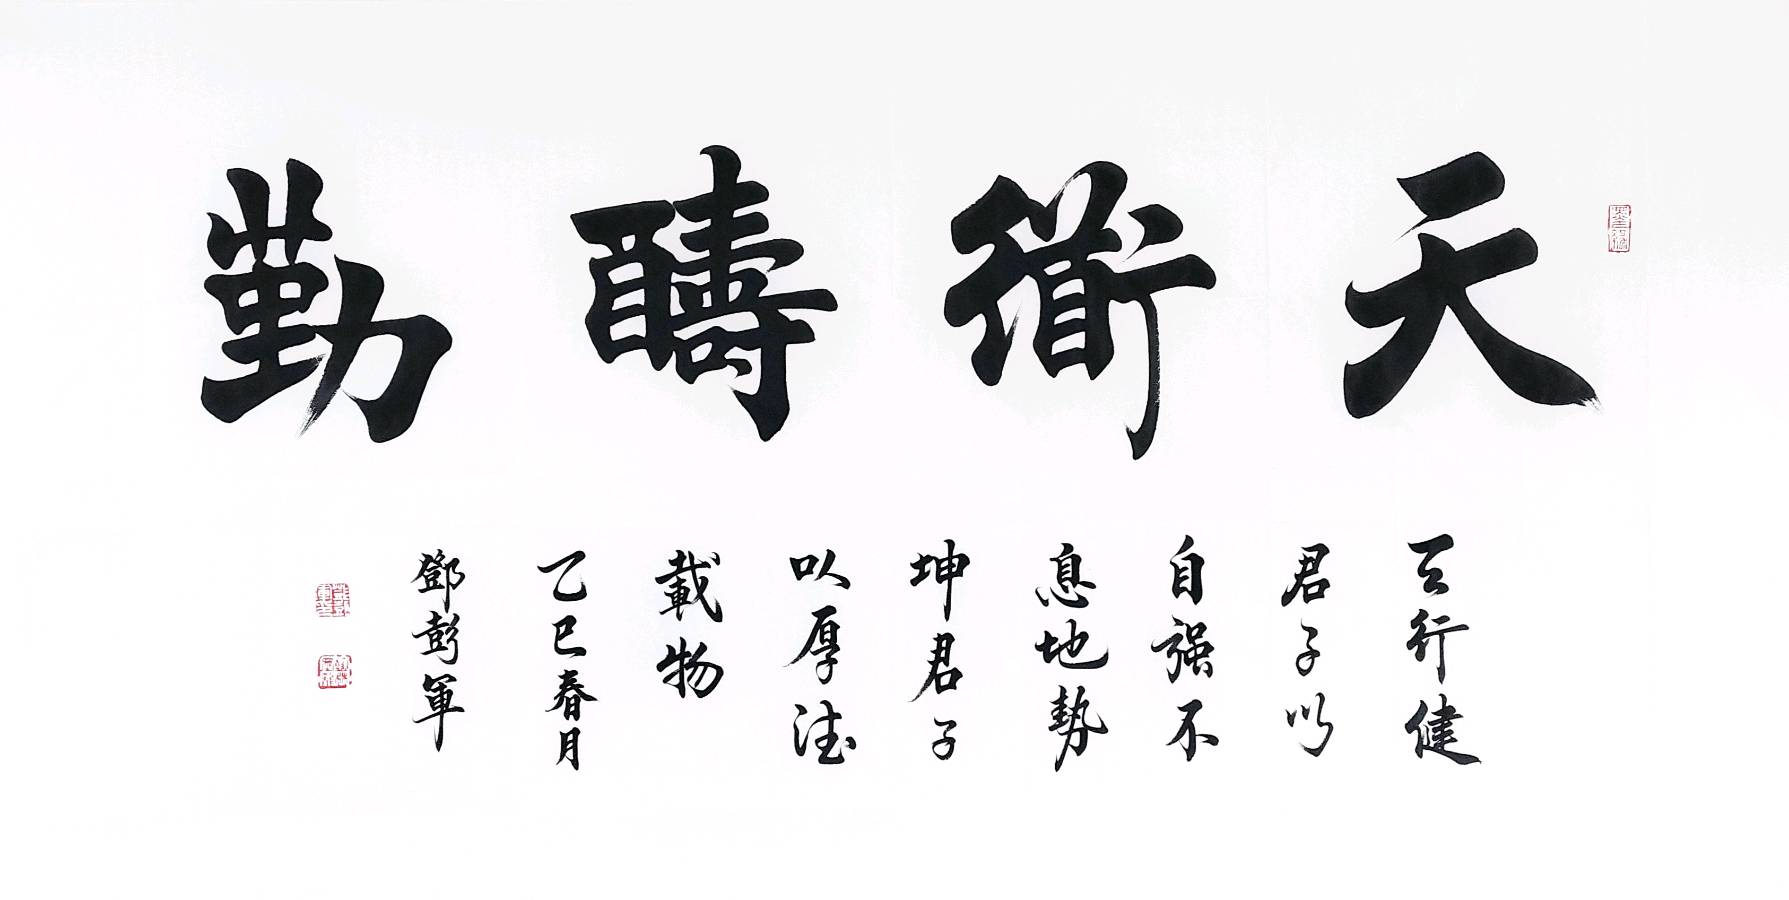 天衜醻勤
天行健
君子以
自强不
息地勢
坤君子
以厚德
載物
乙巳春月
鄧彭軍